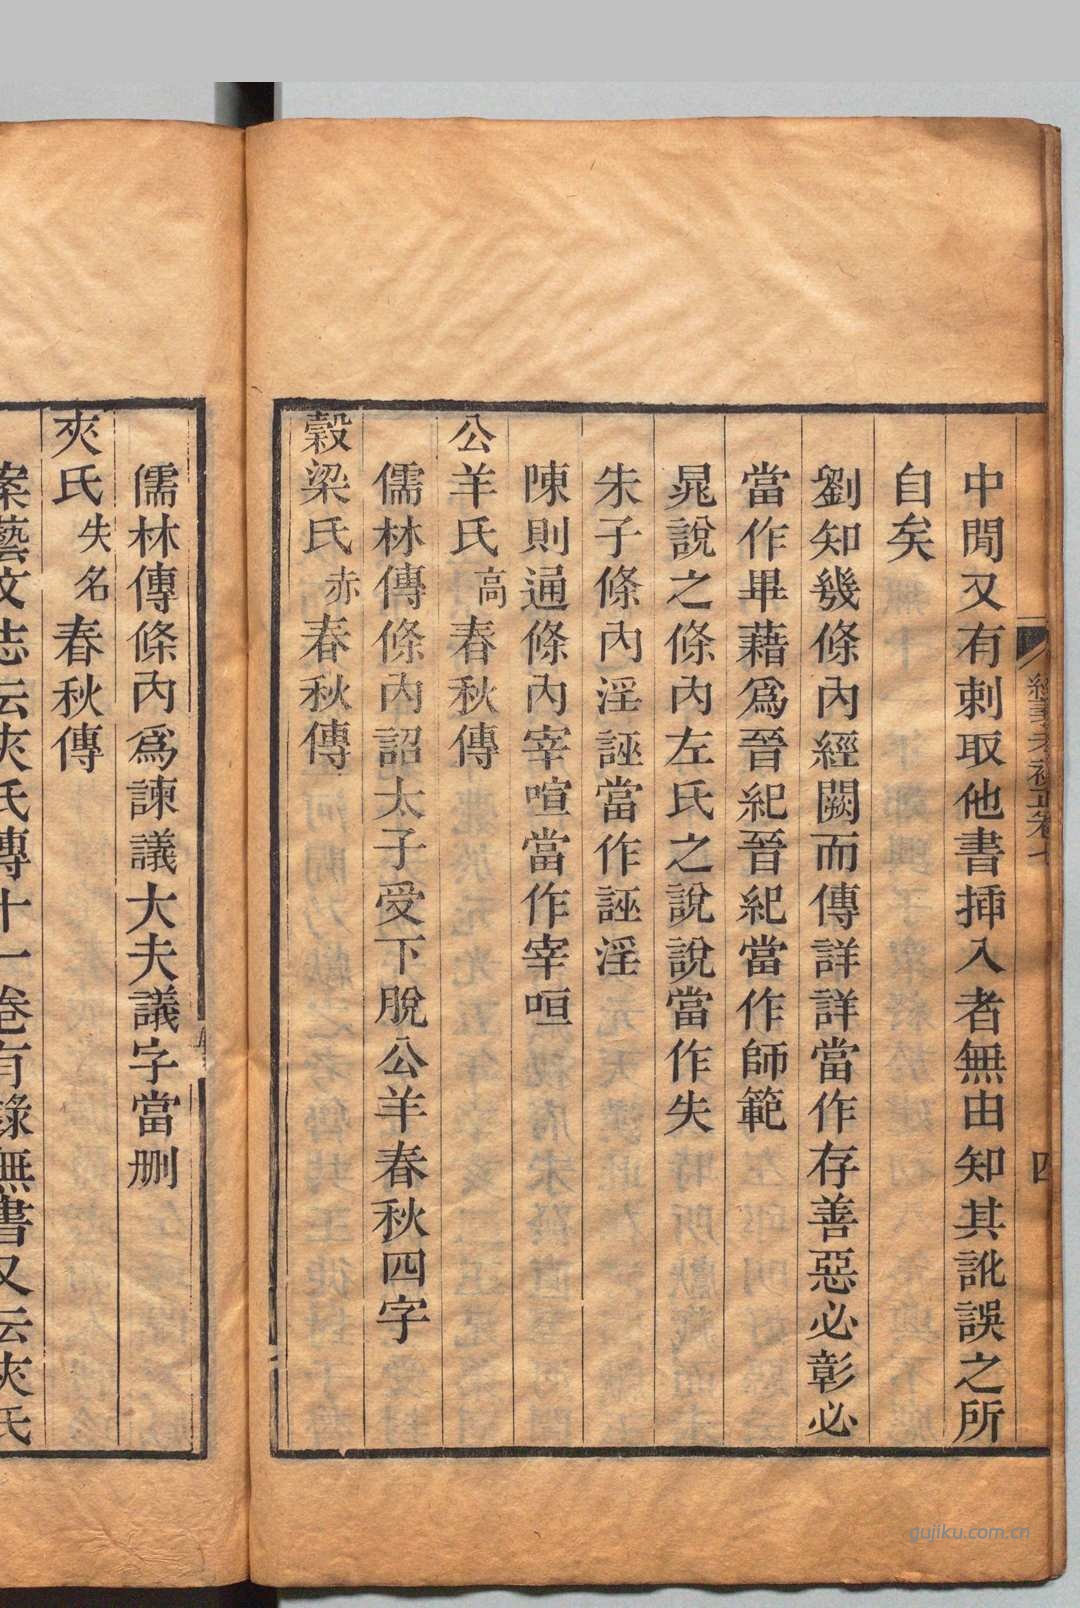 中閒又有刺取他書揷入者無由知其訛誤之所
自矣
劉知幾條內經闕而傳詳詳當作存善惡必彰必
當作畢藉爲晉紀晉紀當作師範
晁說之條內左氏之說說當作失
朱子條內淫誣當作誣淫
陳則通條內宰喧當作宰咺
公羊氏高春秋傳
儒林傳條內詔太子受下脫公羊春秋四字
穀梁氏赤春秋傳
經義考補正卷七
四
儒林傳條內爲諫議大夫議字當刪
夾氏失名春秋傳
案藝文志云夾氏傳十一卷有錄無書又云夾氏
gujiku.com.cn